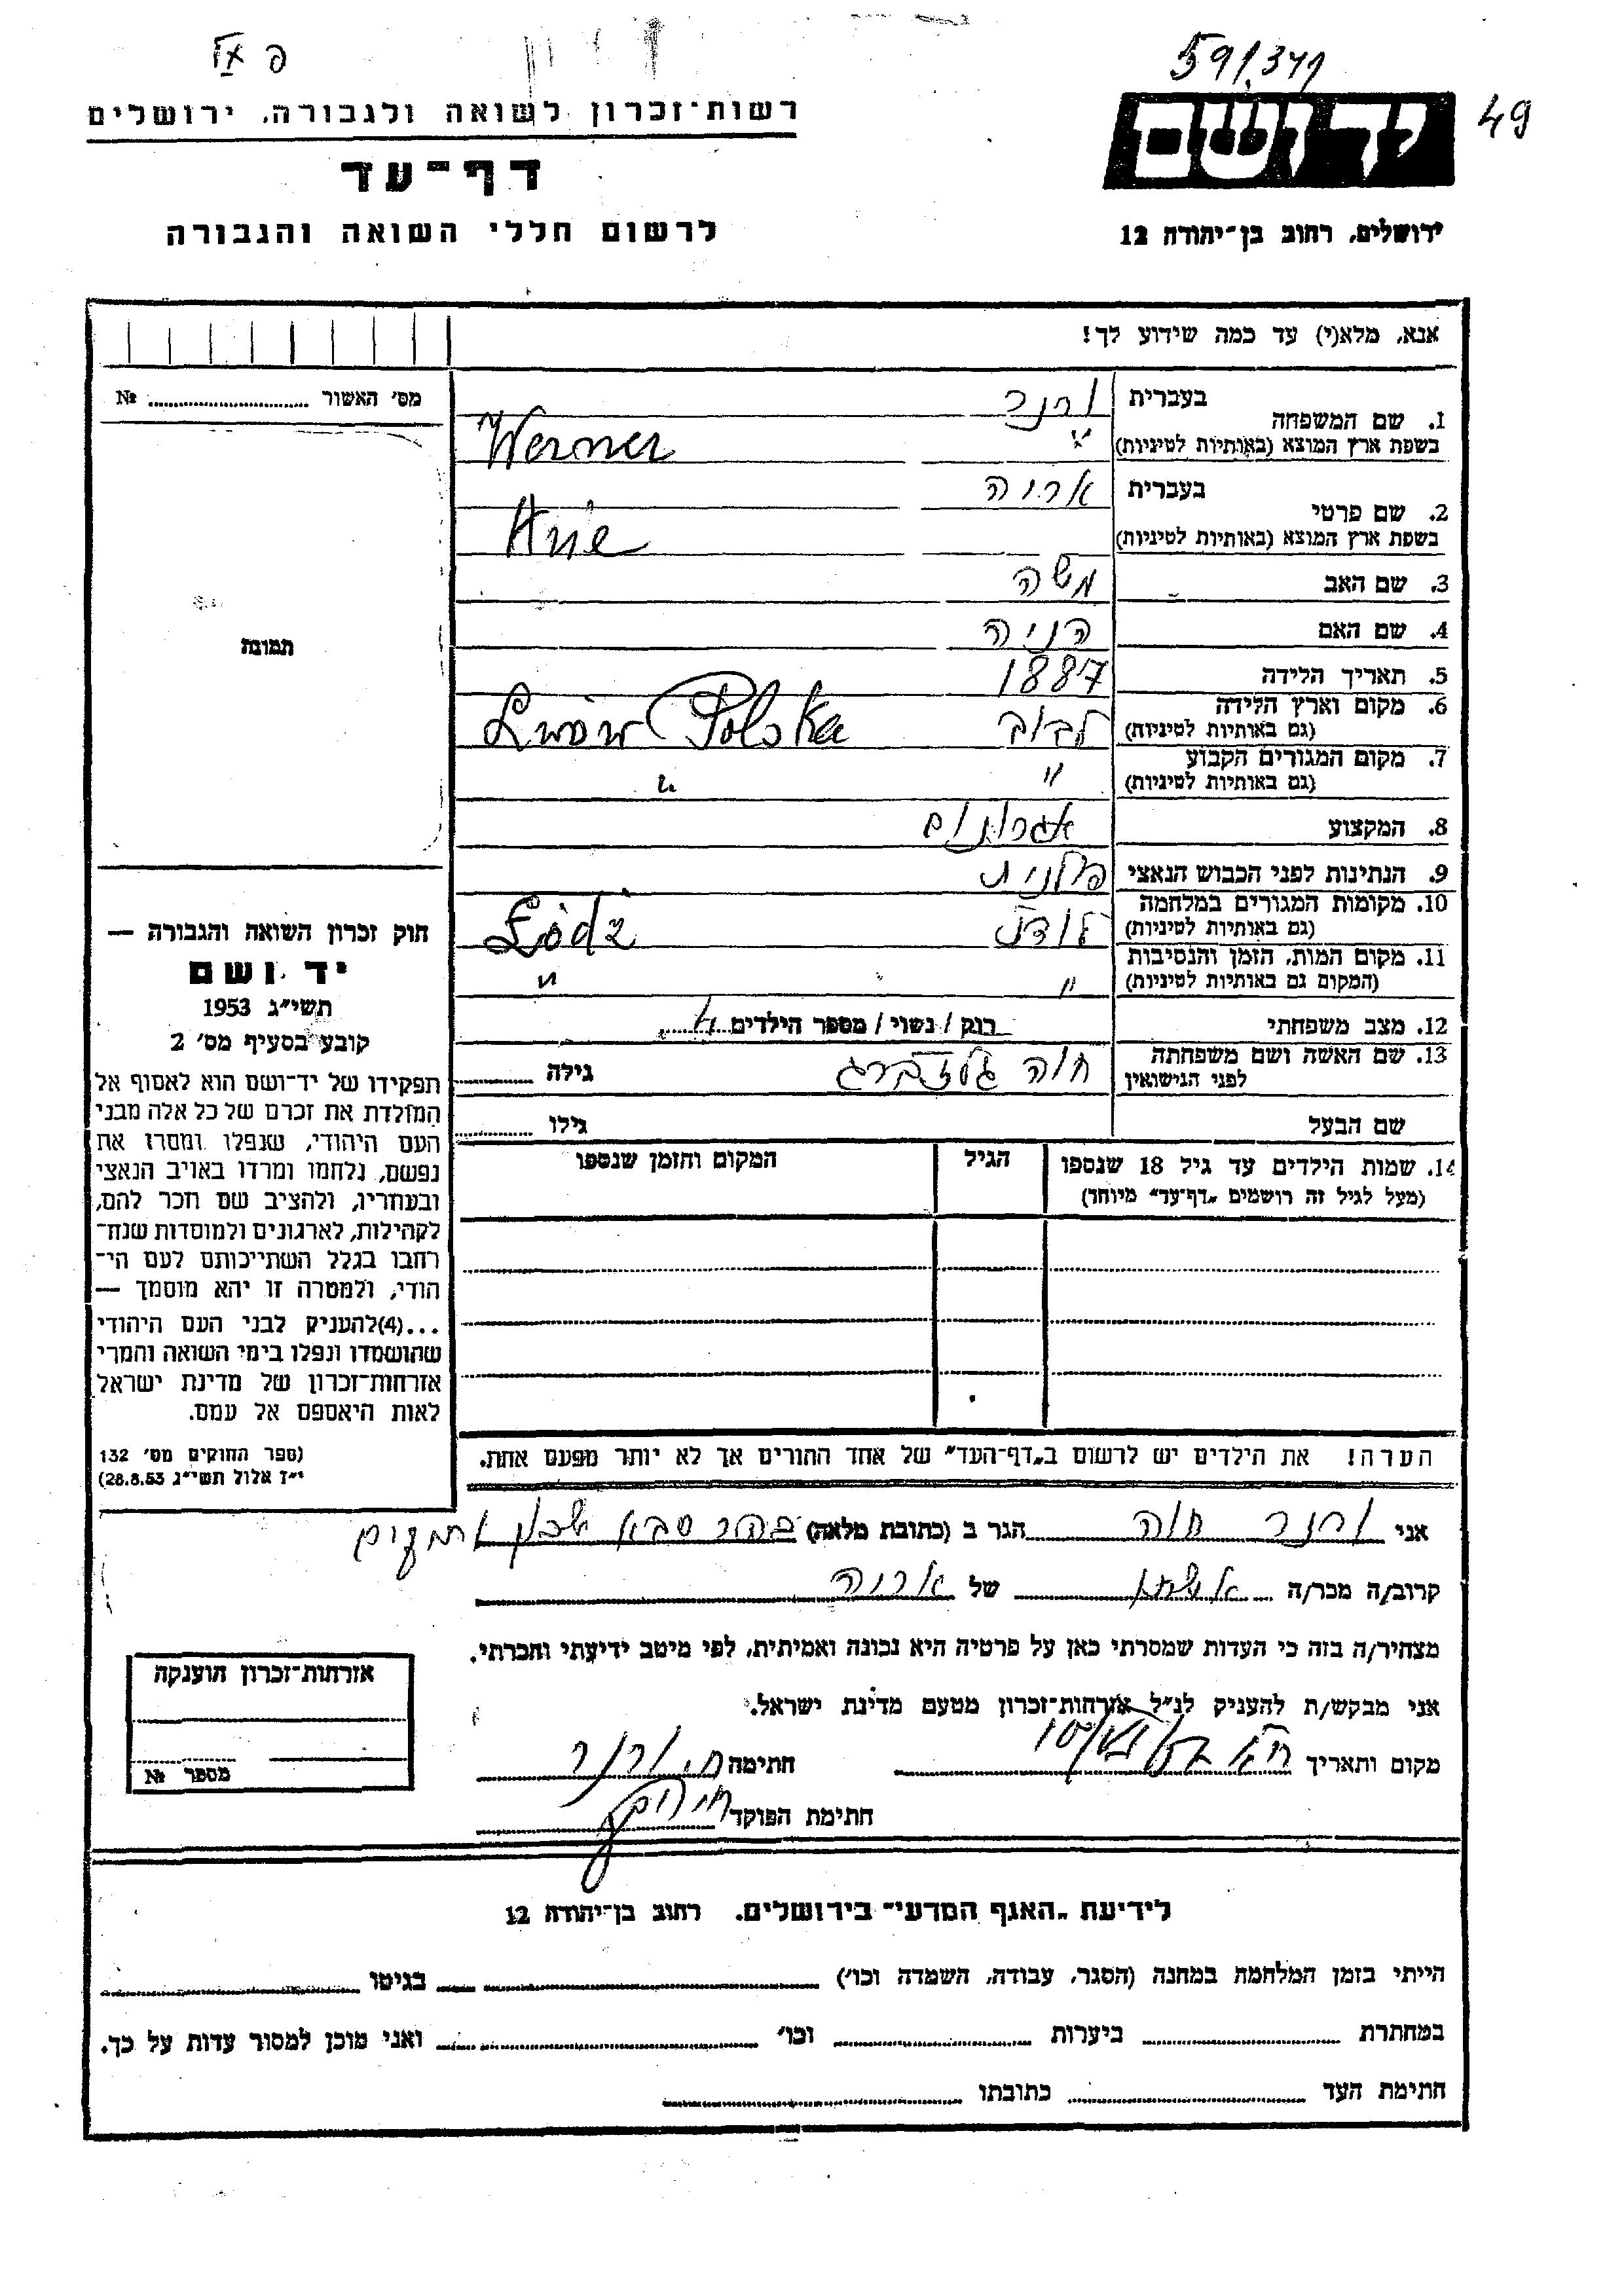 59/341
49
פ IX
יד ושם
ירושלים, רחוב בן־יהודה 12
רשות־זכרון לשואה ולגבורה, ירושלים
דף־עד
לרשום חללי השואה והגבורה
אנא, מלא(י) עד כמה שידוע לך!
מס׳ האשור № 
1. שם המשפחה בעברית ורנר
בשפת ארץ המוצא (באותיות לטיניות) Werner
2. שם פרטי בעברית אריה
בשפת ארץ המוצא (באותיות לטיניות) Arie
3. שם האב משה
4. שם האם הניה
5. תאריך הלידה 1887
6. מקום וארץ הלידה (גם באותיות לטיניות) לבוב Lwów Polska
7. מקום המגורים הקבוע (גם באותיות לטיניות) " "
8. המקצוע אגרונום
9. הנתינות לפני הכבוש הנאצי פולנית
10. מקומות המגורים במלחמה (גם באותיות לטיניות) לודז Łódź
11. מקום המות, הזמן והנסיבות (המקום גם באותיות לטיניות) " "
12. מצב משפחתי רוק / נשוי / מספר הילדים 4
13. שם האשה ושם משפחתה לפני הנישואין חוה גולדברג גילה
שם הבעל גילו
14. שמות הילדים עד גיל 18 שנספו
(מעל לגיל זה רושמים „דף־עד" מיוחד)
הגיל
המקום והזמן שנספו
הערה! את הילדים יש לרשום ב„דף־העד" של אחד ההורים אך לא יותר מפעם אחת.
תמונה
חוק זכרון השואה והגבורה —
יד ושם
תשי״ג 1953
קובע בסעיף מס׳ 2
תפקידו של יד־ושם הוא לאסוף אל
המולדת את זכרם של כל אלה מבני
העם היהודי, שנפלו ומסרו את
נפשם, נלחמו ומרדו באויב הנאצי
ובעוזריו, ולהציב שם וזכר להם,
לקהילות, לארגונים ולמוסדות שנח־
רבו בגלל השתייכותם לעם הי־
הודי, ולמטרה זו יהא מוסמך —
...(4)להעניק לבני העם היהודי
שהושמדו ונפלו בימי השואה והמרי
אזרחות־זכרון של מדינת ישראל
לאות היאספם אל עמם.
(ספר החוקים מס׳ 132
י״ז אלול תשי״ג 28.8.53)
אני ורנר חוה הגר ב (כתובת מלאה) כפר סבא שכון ותמקים
קרוב/ה מכר/ה אשתו של אריה
מצהיר/ה בזה כי העדות שמסרתי כאן על פרטיה היא נכונה ואמיתית, לפי מיטב ידיעתי והכרתי.
אני מבקש/ת להעניק לנ״ל אזרחות־זכרון מטעם מדינת ישראל.
מקום ותאריך חתימה ח. ורנר
חתימת הפוקד
אזרחות־זכרון הוענקה
מספר №
לידיעת „האגף המדעי" בירושלים, רחוב בן־יהודה 12
הייתי בזמן המלחמה במחנה (הסגר, עבודה, השמדה וכו׳) בגיטו
במחתרת ביערות וכו׳ ואני מוכן למסור עדות על כך.
חתימת העד כתובתו